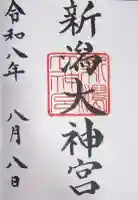 新潟大神宮
令和八年
八月八日